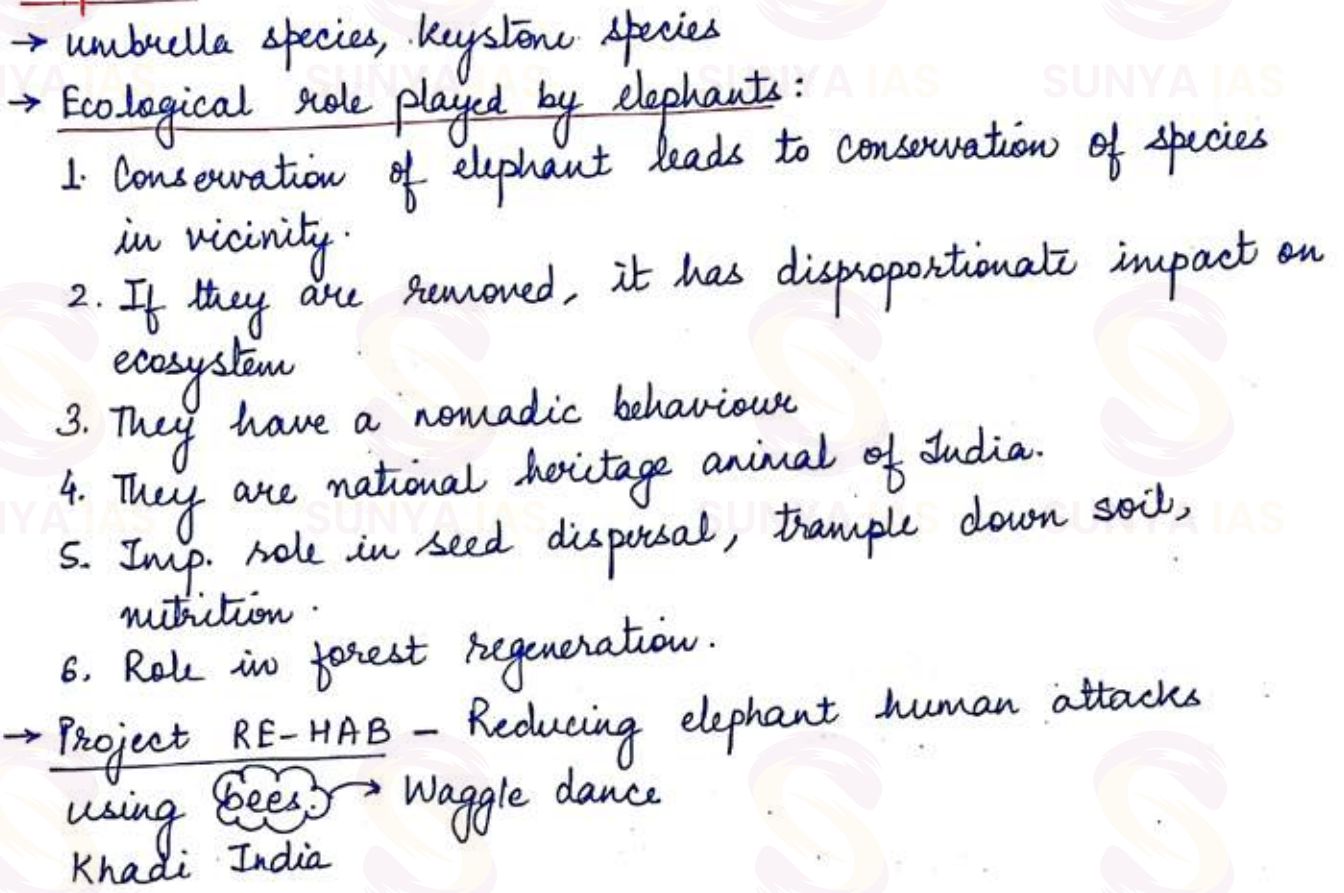 → umbrella species, keystone species
→ Ecological role played by elephants:
1. Conservation of elephant leads to conservation of species
in vicinity.
2. If they are removed, it has disproportionate impact on
ecosystem
3. They have a nomadic behaviour
4. They are national heritage animal of India.
5. Imp. role in seed dispersal, trample down soil,
nutrition.
6. Role in forest regeneration.
→ Project RE-HAB - Reducing elephant human attacks
using bees. → Waggle dance
Khadi India
SUNYA IAS